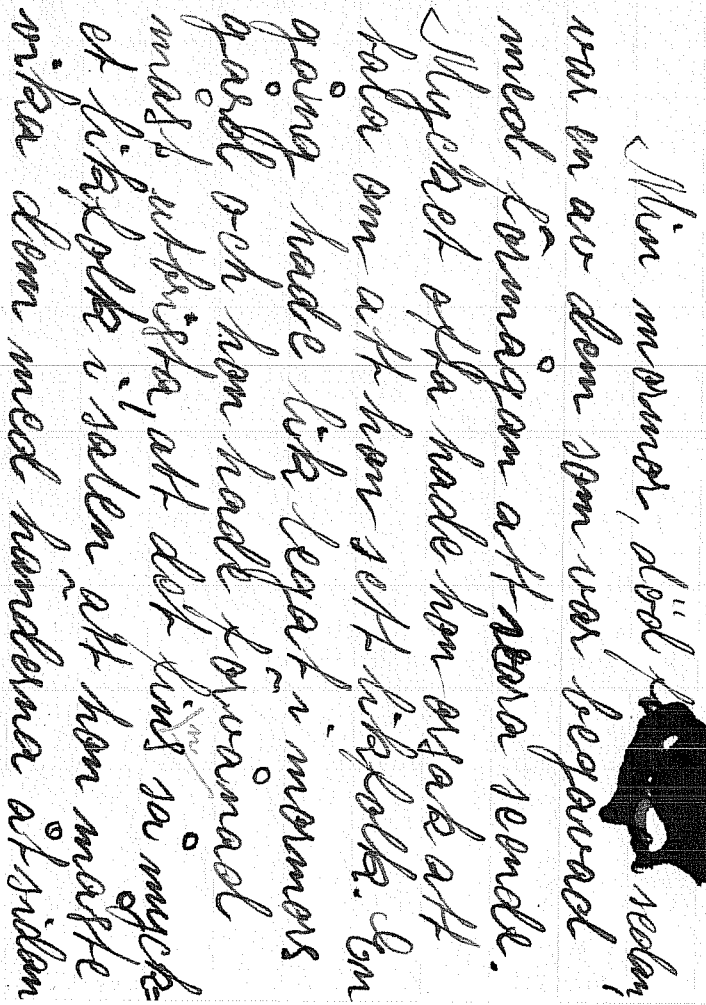 Min mormor, död sedan,
var en av dem som var begavad
med förmågan att vara seende.
Mycket ofta hade hon orsak att
tala om att hon sett likfolk. En
gång hade lik legat i mormors
gård och hon hade förvånad
måst utbrista, att det fins så myck=
et likfolk i salen att hon måste
vika dem med händerna åt sidan